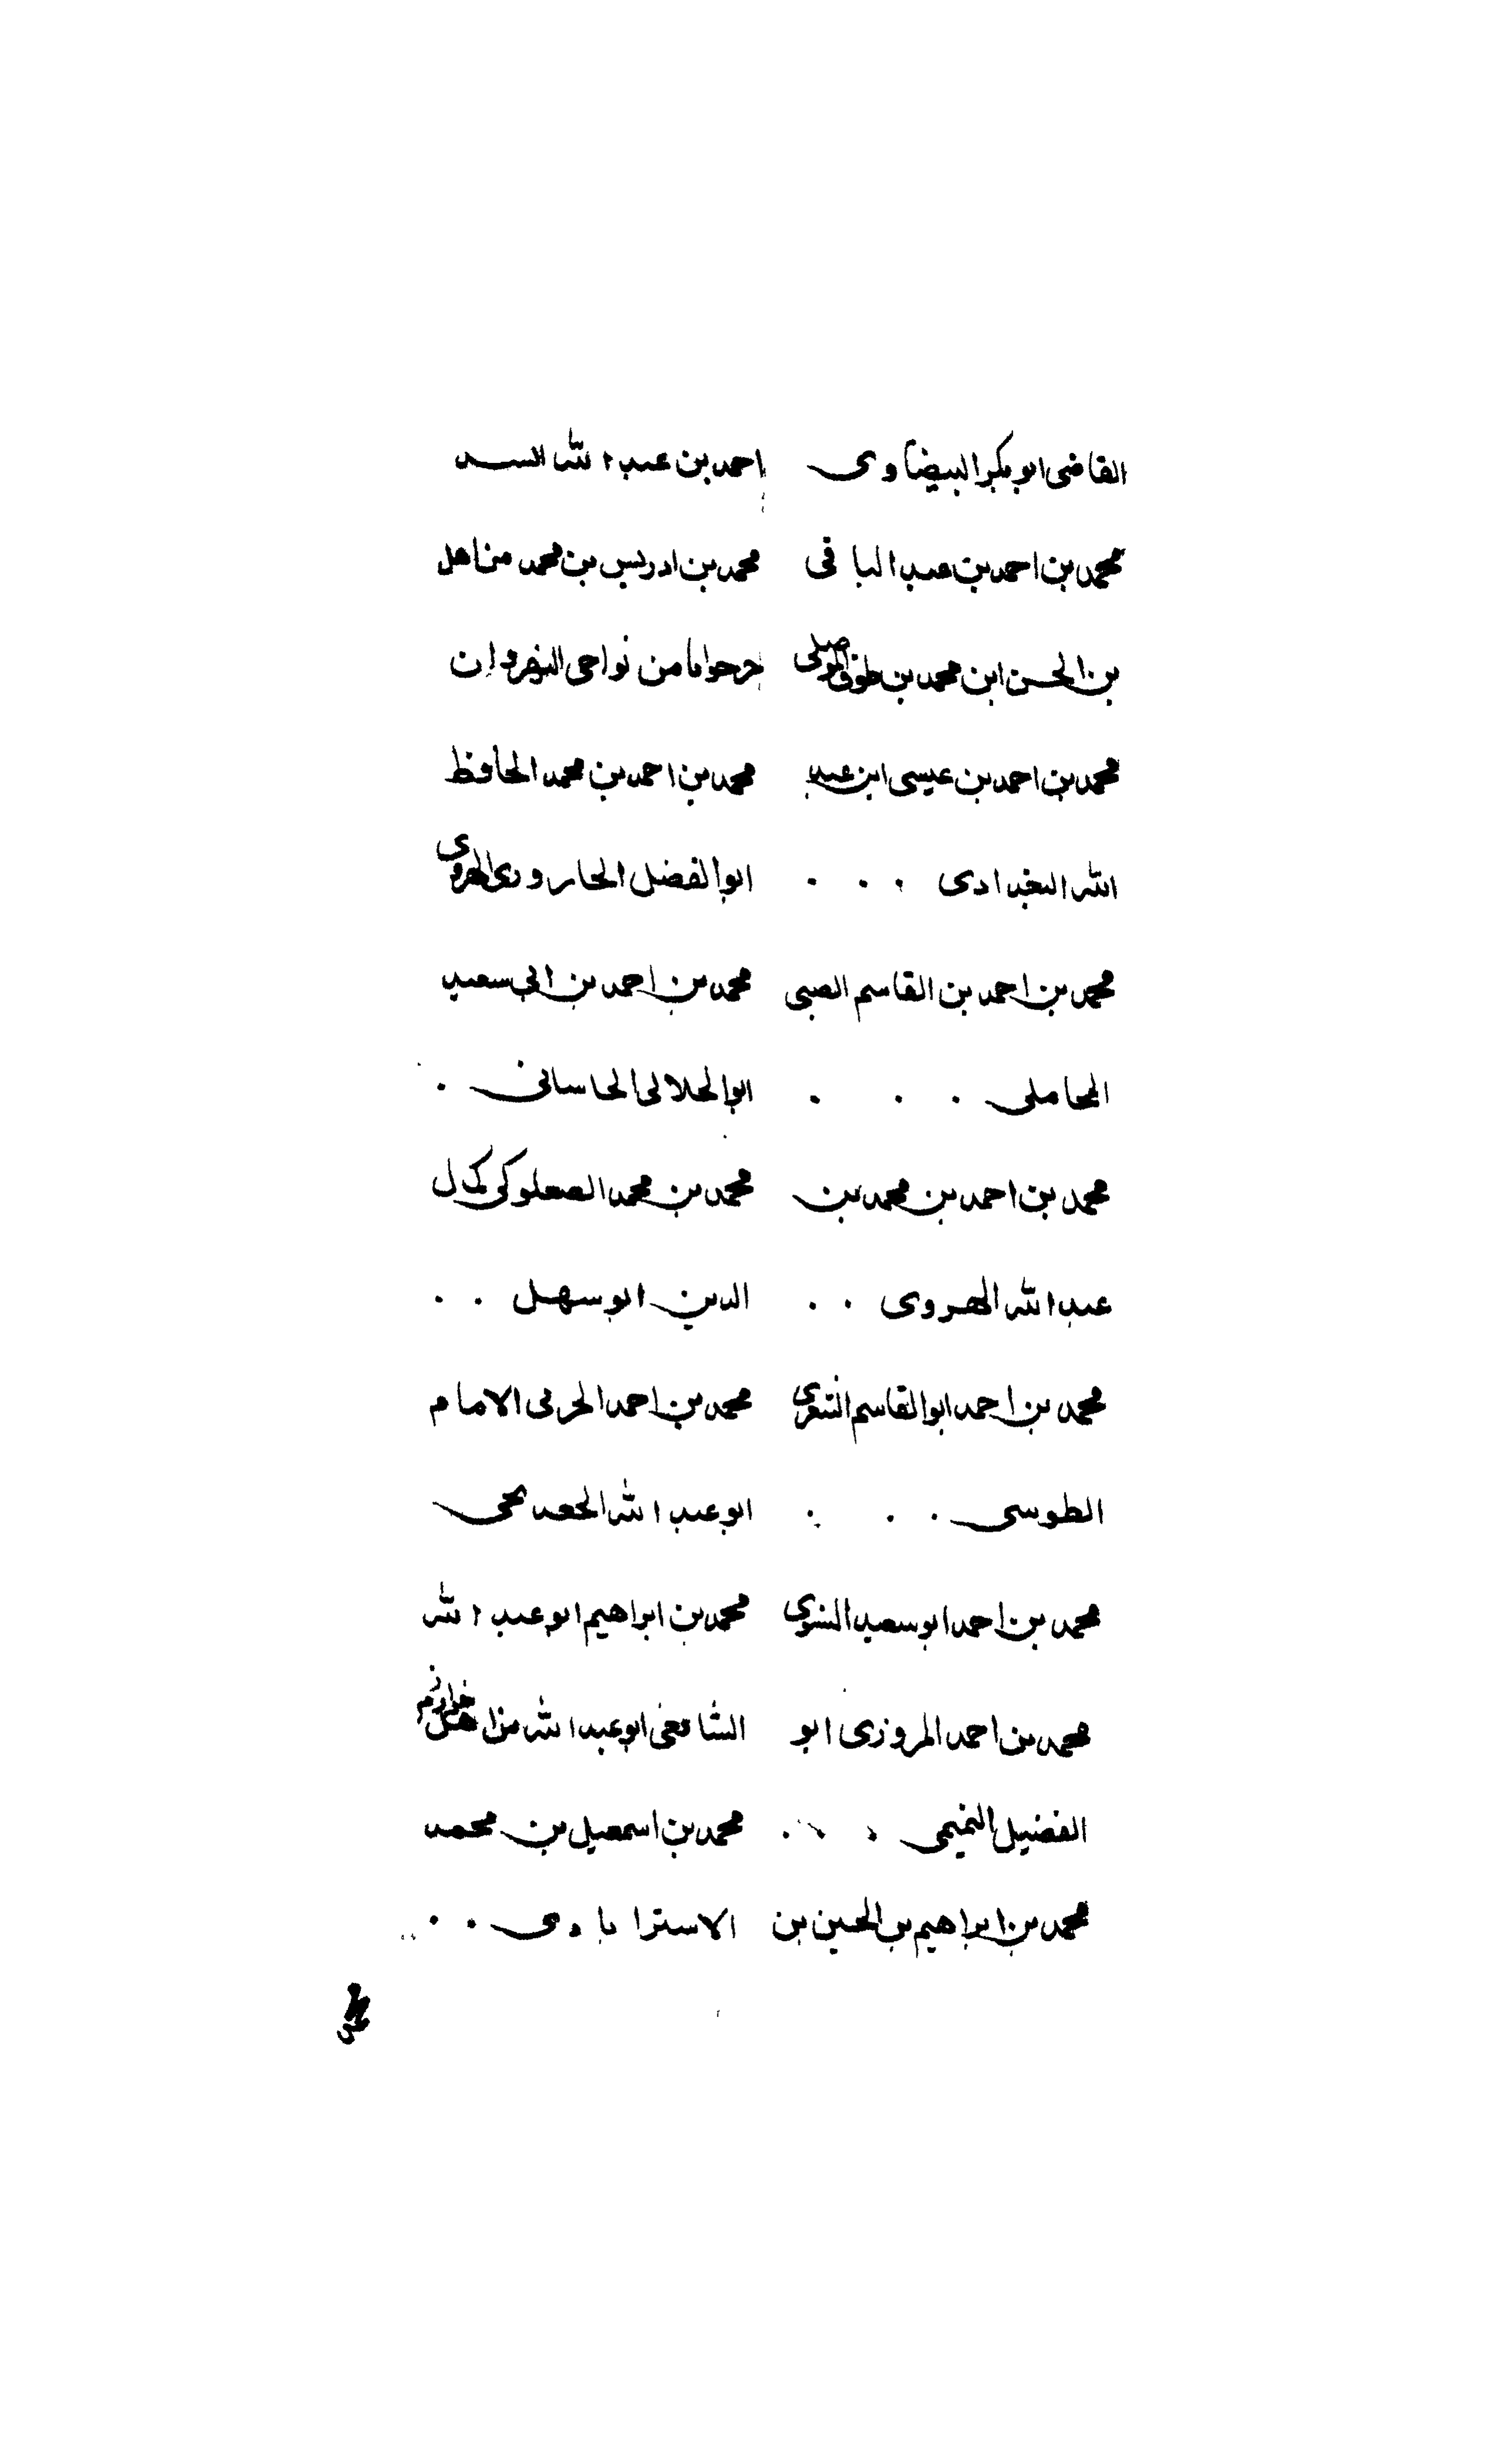 القاضى ابو بكر البيضاوى
احمد بن عبد الله
محمد بن احمد بن عبد الباقى
محمد بن ادريس بن محمد من اهل
بن الحسن ابن محمد بن طوق الموصلى
من نواحى النهروان
محمد بن احمد بن عيسى ابن عبد
محمد بن احمد بن محمد الحافظ
الله البغدادى . . .
ابو الفضل الجارودى الهروى
محمد بن احمد بن القاسم الضبى
محمد بن احمد بن ابى سعيد
المحاملى . . .
محمد بن احمد بن محمد بن
محمد بن محمد الصعلوكى كمال
عبد الله الهروى . .
الدين ابو سهل . .
محمد بن احمد ابو القاسم
محمد بن احمد الامام
الطوسى . . .
ابو عبد الله
محمد بن احمد ابو سعيد النسوى
محمد بن ابراهيم ابو عبد الله
محمد بن احمد المروزى ابو
الشافعى ابو عبد الله من اهل خوارزم
الفضل التميمى . . .
محمد بن اسمعيل بن محمد
محمد بن ابراهيم بن الحسين بن
الاسترابادى . .